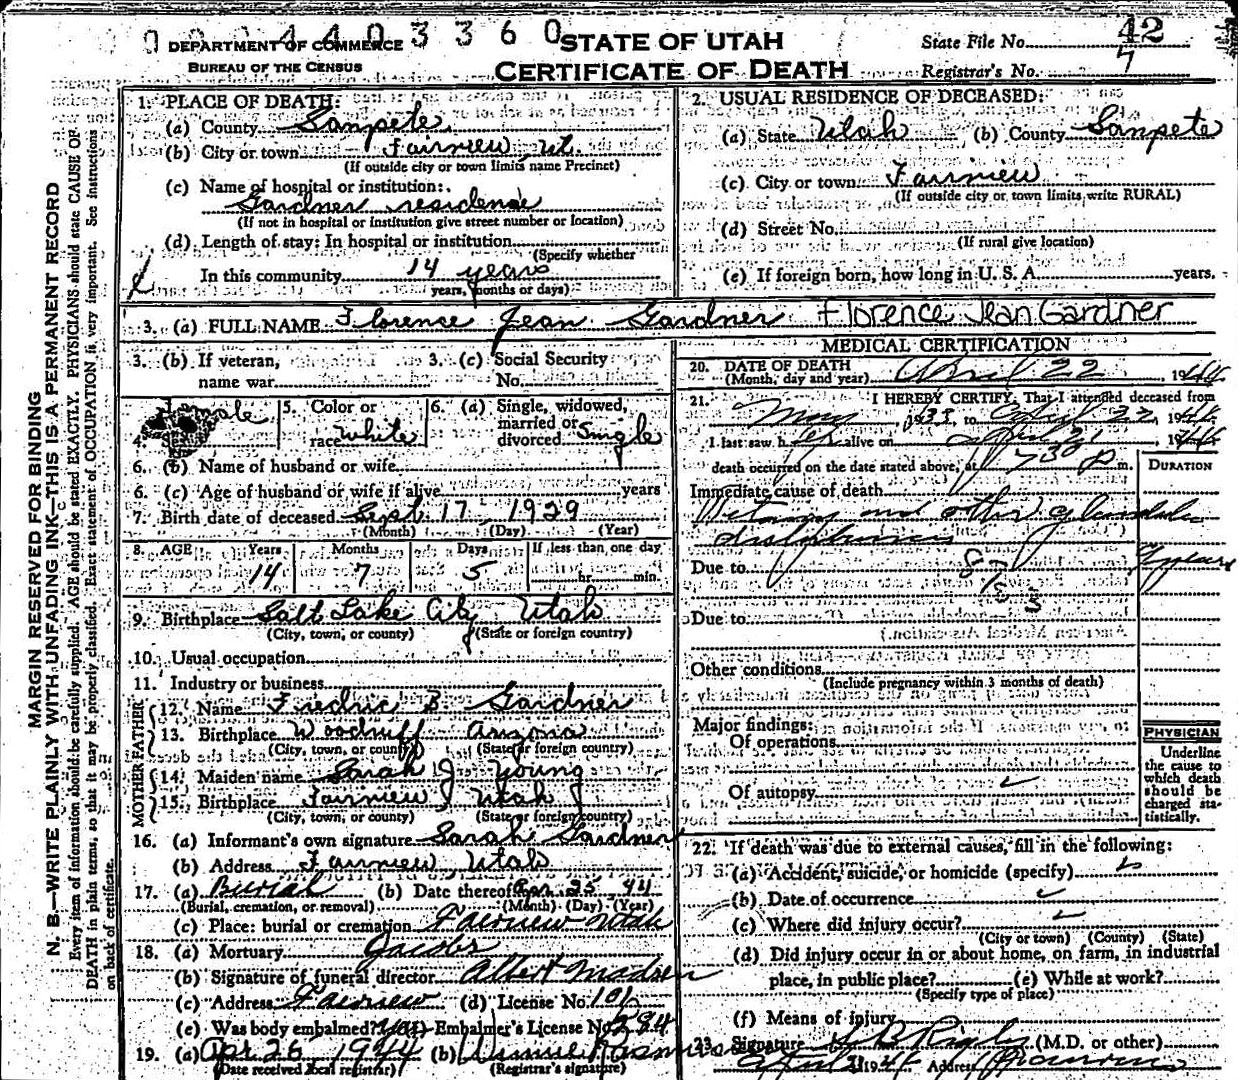 0 0 4 4 0 3 3 6 0
DEPARTMENT OF COMMERCE
BUREAU OF THE CENSUS
STATE OF UTAH
CERTIFICATE OF DEATH
State File No. 42
Registrar's No. 7
MARGIN RESERVED FOR BINDING
N. B.—WRITE PLAINLY WITH UNFADING INK—THIS IS A PERMANENT RECORD
Every item of information should be carefully supplied. AGE should be stated EXACTLY. PHYSICIANS should state CAUSE OF
DEATH in plain terms, so that it may be properly classified. Exact statement of OCCUPATION is very important. See instructions
on back of certificate.
1. PLACE OF DEATH:
(a) County Sanpete
(b) City or town Fairview, Ut.
(If outside city or town limits name Precinct)
(c) Name of hospital or institution:
Gardner residence
(If not in hospital or institution give street number or location)
(d) Length of stay: In hospital or institution
(Specify whether
In this community 14 years
years, months or days)
2. USUAL RESIDENCE OF DECEASED:
(a) State Utah (b) County Sanpete
(c) City or town Fairview
(If outside city or town limits write RURAL)
(d) Street No.
(If rural give location)
(e) If foreign born, how long in U. S. A. years.
3. (a) FULL NAME Florence Jean Gardner Florence Jean Gardner
3. (b) If veteran,
name war
3. (c) Social Security
No.
4. Female
5. Color or
race White
6. (a) Single, widowed,
married or
divorced Single
6. (b) Name of husband or wife
6. (c) Age of husband or wife if alive years
7. Birth date of deceased Sept. 17, 1929
(Month) (Day) (Year)
8. AGE Years Months Days If less than one day
14 7 5 hr. min.
9. Birthplace Salt Lake City Utah
(City, town, or county) (State or foreign country)
10. Usual occupation
11. Industry or business
FATHER
12. Name Fredric B. Gardner
13. Birthplace Woodruff Arizona
(City, town, or county) (State or foreign country)
MOTHER
14. Maiden name Sarah J. Young
15. Birthplace Fairview Utah
(City, town, or county) (State or foreign country)
16. (a) Informant's own signature Sarah Gardner
(b) Address Fairview Utah
17. (a) Burial (b) Date thereof Apr 25 44
(Burial, cremation, or removal) (Month) (Day) (Year)
(c) Place: burial or cremation Fairview Utah
18. (a) Mortuary Jacobs
(b) Signature of funeral director Albert Madsen
(c) Address Fairview (d) License No. 101
(e) Was body embalmed? Yes Embalmer's License No. 294
19. (a) Apr. 26, 1944 (b)
(Date received local registrar) (Registrar's signature)
MEDICAL CERTIFICATION
20. DATE OF DEATH
(Month, day and year) April 22, 1944
21. I HEREBY CERTIFY, That I attended deceased from
May, 1933, to April 22, 1944
I last saw her alive on April 21, 1944
death occurred on the date stated above, at 7:30 P m.
DURATION
Immediate cause of death
and other glandular
disturbances
Due to years
Due to
Other conditions
(Include pregnancy within 3 months of death)
Major findings:
Of operations
Of autopsy ✓
PHYSICIAN
Underline
the cause to
which death
should be
charged sta-
tistically.
22. If death was due to external causes, fill in the following:
(a) Accident, suicide, or homicide (specify) ✓
(b) Date of occurrence ✓
(c) Where did injury occur? ✓
(City or town) (County) (State)
(d) Did injury occur in or about home, on farm, in industrial
place, in public place? (e) While at work?
(Specify type of place)
(f) Means of injury
23. Signature (M.D. or other)
1944 Address